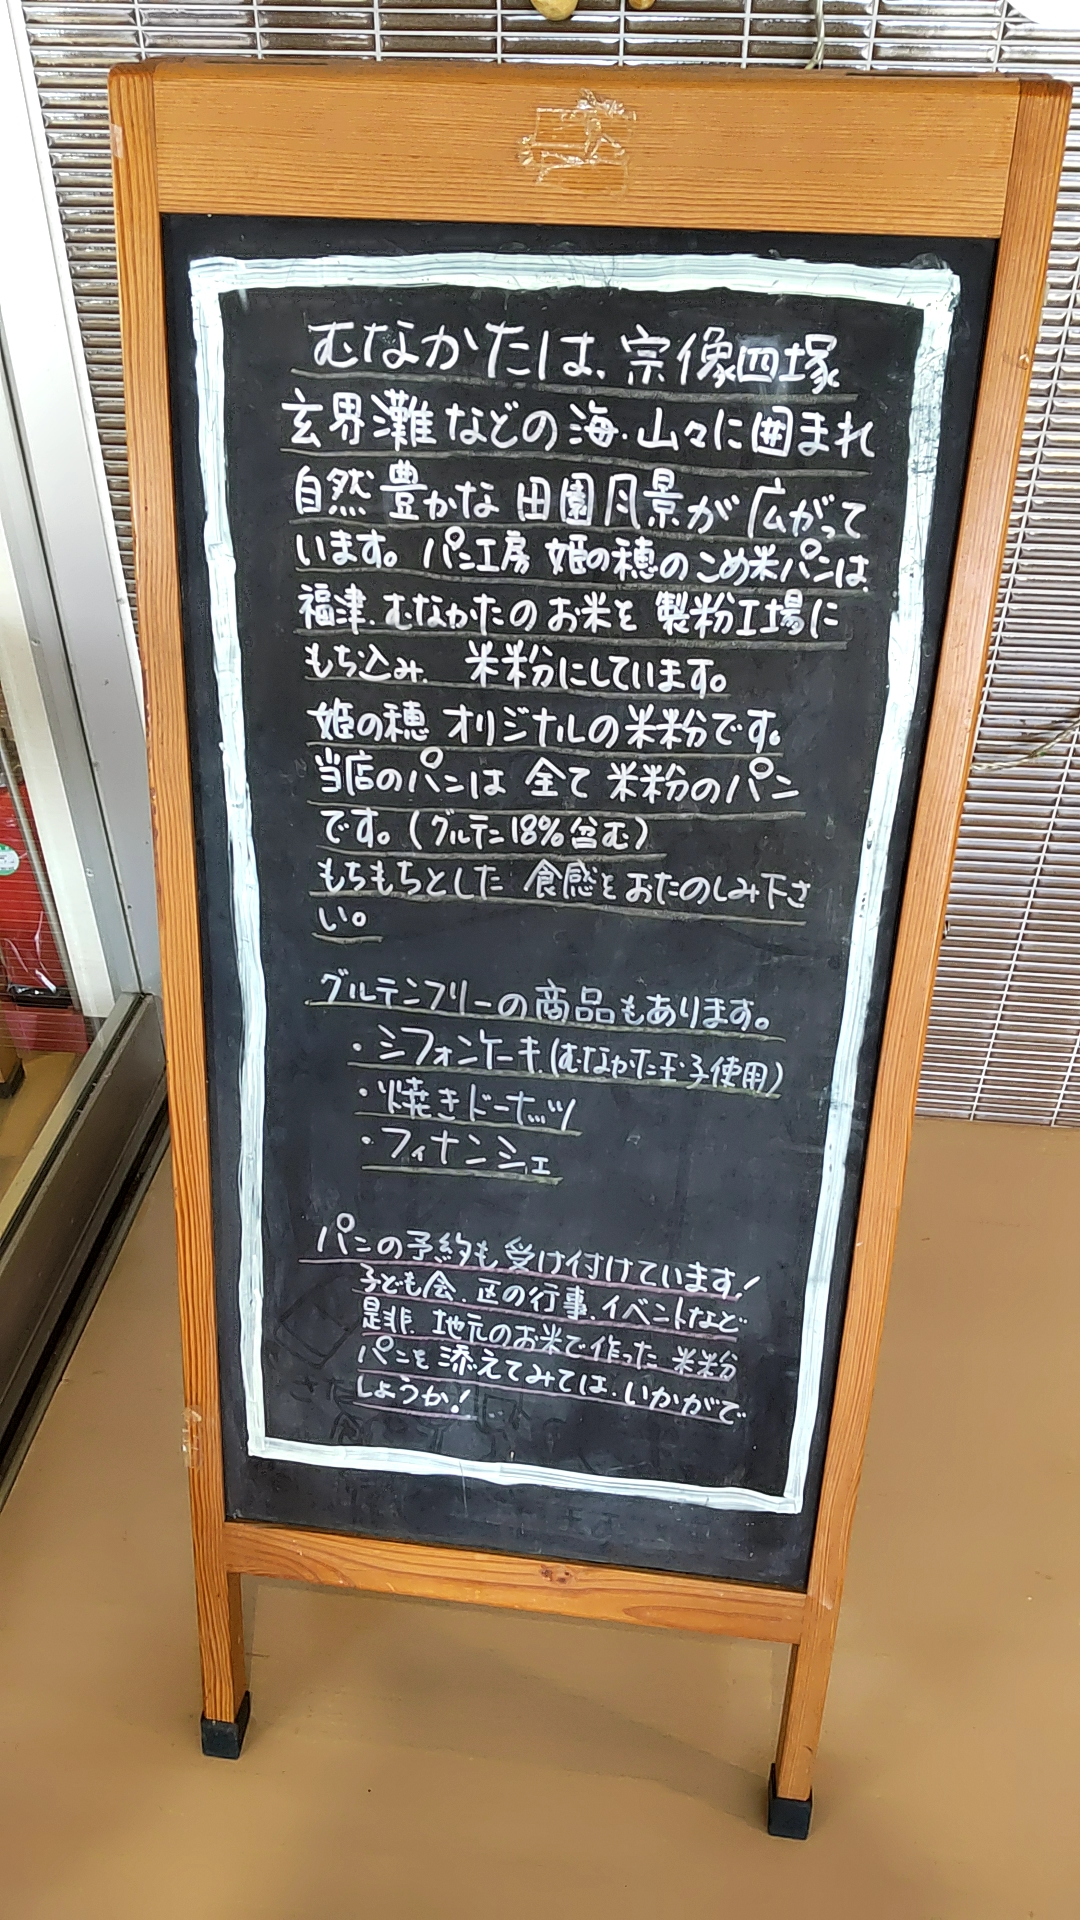 むなかたは、宗像四塚
玄界灘などの海・山々に囲まれ
自然豊かな田園風景が広がって
います。パン工房 姫の穂のこめ米パンは
福津、むなかたのお米を製粉工場に
もち込み、米粉にしています。
姫の穂オリジナルの米粉です。
当店のパンは全て米粉のパン
です。(グルテン18%含む)
もちもちとした食感をおたのしみ下さ
い。
グルテンフリーの商品もあります。
・シフォンケーキ(むなかた玉子使用)
・焼きドーナッツ
・フィナンシェ
パンの予約も受け付けています!
子ども会、区の行事、イベントなど
是非、地元のお米で作った米粉
パンを添えてみては、いかがで
しょうか!